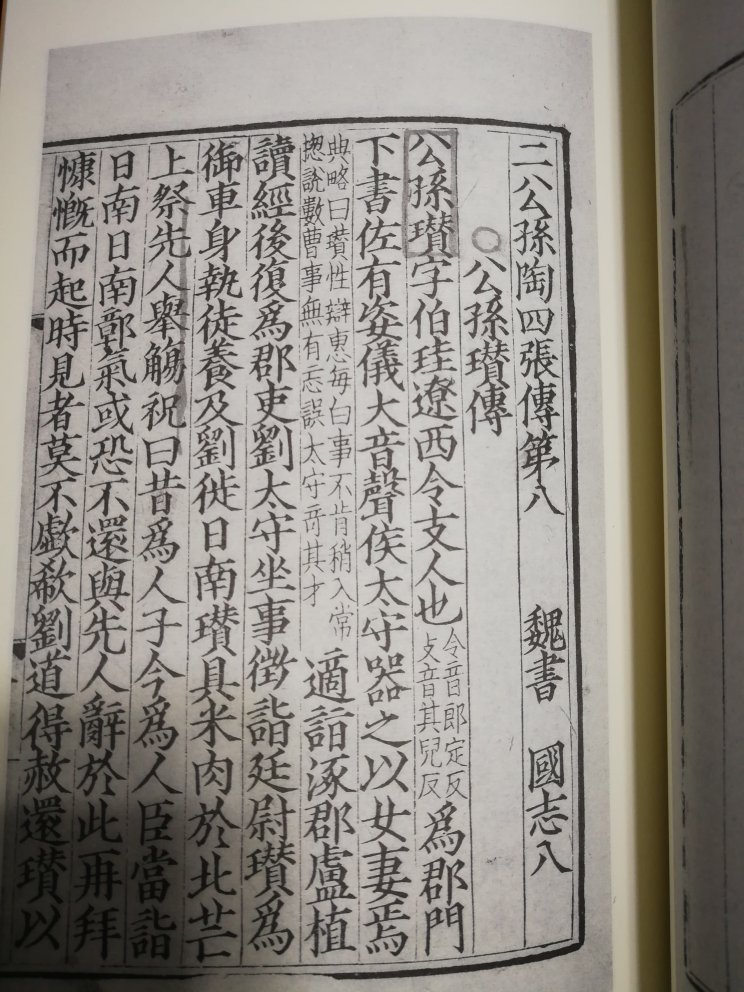 二公孫陶四張傳第八 魏書 國志八
公孫瓚傳
公孫瓚字伯珪遼西令支人也
令音郎定反
支音其兒反
爲郡門
下書佐有姿儀大音聲侯太守器之以女妻焉
典略曰瓚性辯惠每白事不肯稍入常
揔說數曹事無有忘誤太守奇其才
適詣涿郡盧植
讀經後復爲郡吏劉太守坐事徵詣廷尉瓚爲
御車身執徒養及劉徙日南瓚具米肉於北芒
上祭先人舉觴祝曰昔爲人子今爲人臣當詣
日南日南鄣氣或恐不還與先人辭於此再拜
慷慨而起時見者莫不歔欷劉道得赦還瓚以